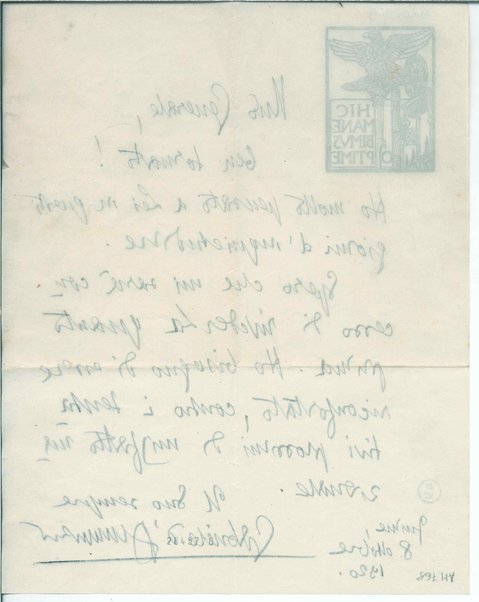 HIC
MANE
BIMVS
OPTIME
Mio Generale,
ben tornato!
Ho molto pensato a Lei in questi
giorni d'inquietudine.
Spero che mi sarà con-
cesso di riveder La quanto
prima. Ho bisogno di essere
riconfortato, contro i tenta
tivi prossimi di misfatto na
zionale.
Il Suo sempre
Gabriele d'Annunzio
Fiume,
8 ottobre
1920.